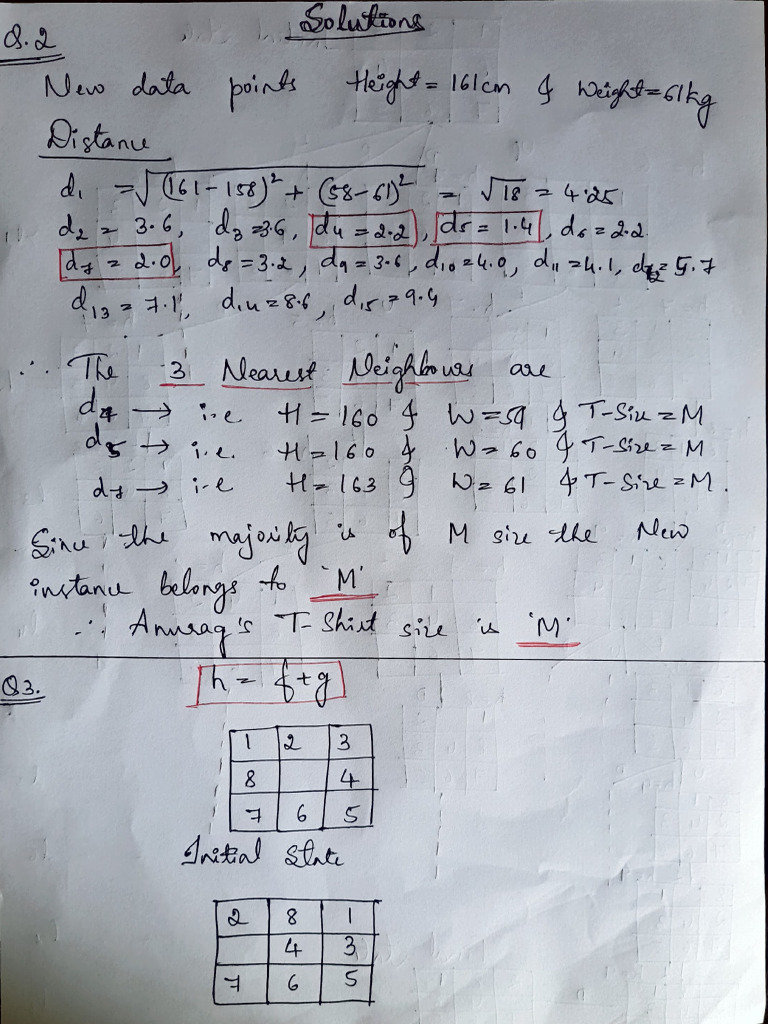 Solutions
Q.2
New data points Height = 161cm & Weight = 61kg
Distance
d1 = √(161-158)² + (58-61)² = √18 = 4.25
d2 = 3.6, d3 = 3.6, d4 = 2.2, d5 = 1.4, d6 = 2.2
d7 = 2.0, d8 = 3.2, d9 = 3.6, d10 = 4.0, d11 = 4.1, d12 = 5.7
d13 = 7.1, d14 = 8.6, d15 = 9.4
∴ The 3 Nearest Neighbours are
d4 → i.e H = 160 & W = 59 & T-Size = M
d5 → i.e. H = 160 & W = 60 & T-Size = M
d7 → i-e H = 163 & W = 61 & T-Size = M.
Since, the majority is of M size the New
instance belongs to 'M'
∴ Anurag's T-Shirt size is 'M'.
Q3. h = f+g
1 2 3
8 4
7 6 5
Initial State
2 8 1
4 3
7 6 5